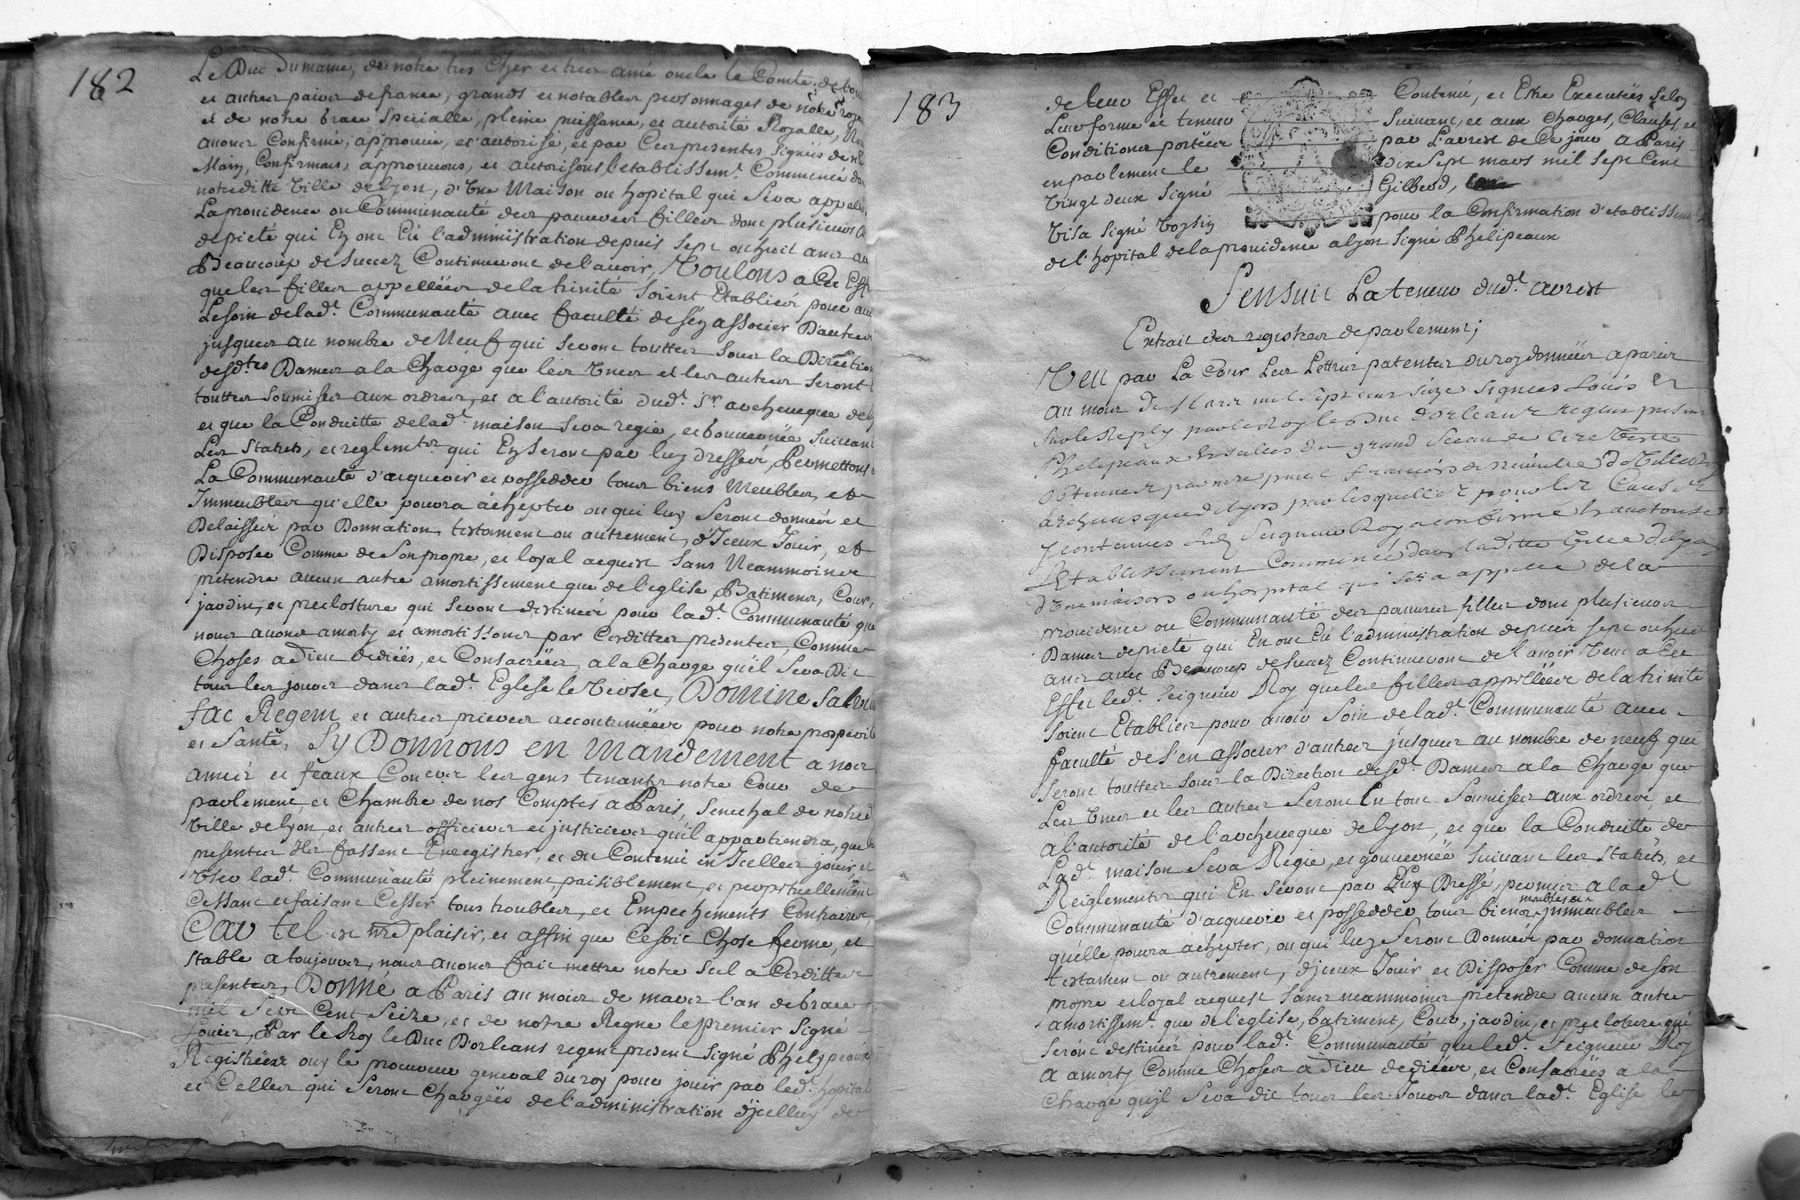 182
Le Duc Dumaine, de notre tres Cher et tres amé oncle le Comte de
et autres pairs de france, grands et notables personnages de notre
et de notre grace specialle, pleine puissance, et autorité Royalle,
auons Confirmé, approuué, et autorisé, et par Ces presentes signées de
Main, Confirmons, approuuons, et autorisons l'etablissemt. Commencé
notreditte Ville de lyon, d'Vne Maison ou hopital qui Sera
La prouidence ou Communauté des pauures filles dont plusieurs
de pieté qui En ont Eû l'administration depuis sept ou huit ans
Beaucoup de succez Continueront de l'auoir, Voulons a Cet
que les filles appellées de la trinité soient Etablies pour
Le soin de lad. Communauté auec faculté de s'en associer D'autres
jusques au nombre de Neuf qui seront touttes sous la Direction
desd.tes Dames a la Charge que les Vnes et les autres seront
touttes soumises aux ordres, et a l'autorité dud. Sr. archeueque de
et que la Conduitte de lad. maison sera regie, et gouuernée suiuant
Les statuts, et reglemts. qui En seront par luy dressés, Permettons
La Communauté d'acquerir et possedder tous biens Meubles, et
Immeubles qu'elle poura achepter ou qui luy seront donnés et
Delaissés par Donnation, testament ou autrement, d'Iceux Jouir, et
Disposer Comme de son propre, et loyal acquest sans Neammoins
pretendre aucun autre amortissement que de l'eglise, Batimens, Cour,
jardin, et preclosture qui seront destinés pour lad. Communauté que
nous auons amorty et amortissons par Cesdittes presentes, Comme
Choses a Dieu dediées, et Consacrées, a la Charge qu'il sera Dit
tous les jours dans lad. Eglise le Verset, Domine saluum
fac Regem, et autres prieres accoutumées pour notre prosperité
et santé, Sy Donnons en mandement a nos
amés et feaux Con.ers les gens tenants notre Cour de
parlement et Chambre de nos Comptes a Paris, Senechal de notre
Ville de lyon et autres officiers et justiciers qu'il appartiendra, que
presentes Ils fassent Enregistrer, et du Contenu en Icelles jouir et
Vser lad. Communauté pleinement, paisiblement, et perpetuellement
Cessant et faisant Cesser tous troubles, et Empechements Contraires,
Car tel est nre plaisir, et affin que Ce soit Chose ferme, et
stable a toujours, nous auons fait mettre notre scel a Cesdittes
presentes, Donné a Paris au mois de mars l'an de grace
mil Sept Cent Seize, et de notre Regne le premier Signé
Loüis, Par le Roy le Duc D'orleans regent present Signé Phelypeaux
Registrées ouy le procureur general du roy pour jouir par led. hopital
et Celles qui seront Chargées de l'administration d'jcelluy de
183
de leur Effet et Contenu, et Estre Executées selon
Leur forme et teneur Suiuant, et aux Charges, Clauses, et
Conditions portées par L'arrest de Ce jour a Paris
en parlement le dix Sept mars mil sept Cent
Vingt deux signé Gilbert,
Visa signé Voysin pour la Confirmation d'etablissemt
de l'hopital de la prouidence a lyon signé Phelipeaux
S'ensuit La teneur dud. arrest
Extrait des registres de parlement;
Veu par La Cour Les Lettres patentes du roy données a paris
au mois De Mars mil sept cens seize signées Loüis Et
sur le Reply par le Roy le Duc d'orleans regent present
Phelipeaux Et scellées du grand sceau de cire Verte
obtenues par françois de neuuille De Villeroy
archeuesque de lyon par lesquelles pour les Causes
y contenues led Seigneur Roy a confirmé
L'Etablissement Commencé dans laditte Ville de lyon
d'Vne maison ou hospital qui sera appellé de la
prouidence ou Communauté des pauures filles dont plusieurs
Dames de pieté qui En ont Eû l'administration depuis sept ou huit
ans auec Beaucoup de succez Continueront de l'auoir Veut a Cet
Effet led. seigneur Roy que les filles appellées de la trinité
soient Etablies pour auoir soin de lad. Communauté auec
faculté de s'en associer d'autres jusques au nombre de neuf qui
seront touttes sous la Direction desd. Dames a la Charge que
Les Vnes et les autres seront En tout soumises aux ordres et
a l'autorité de l'archeueque de lyon, et que la Conduitte de
Lad. maison sera Regie, et gouuernée suiuant les statuts, et
Reiglements qui En seront par luy Dressé, permis a lad.
Communauté d'acquerir et possedder tous biens meubles et jmmeubles
qu'elle poura achepter, ou qui luy seront Donnés par donnation
testament ou autrement, d'jceux Jouir et Disposer Comme de son
propre et loyal acquest sans neammoins pretendre aucun autre
amortissemt. que de l'eglise, batiment, Cour, jardin, et preclosture qui
seront destinés pour lad. Communauté que led. seigneur Roy
a amorty Comme Choses a Dieu dediées, et Consacrées a la
Charge qu'jl sera dit tous les Jours dans lad. Eglise le